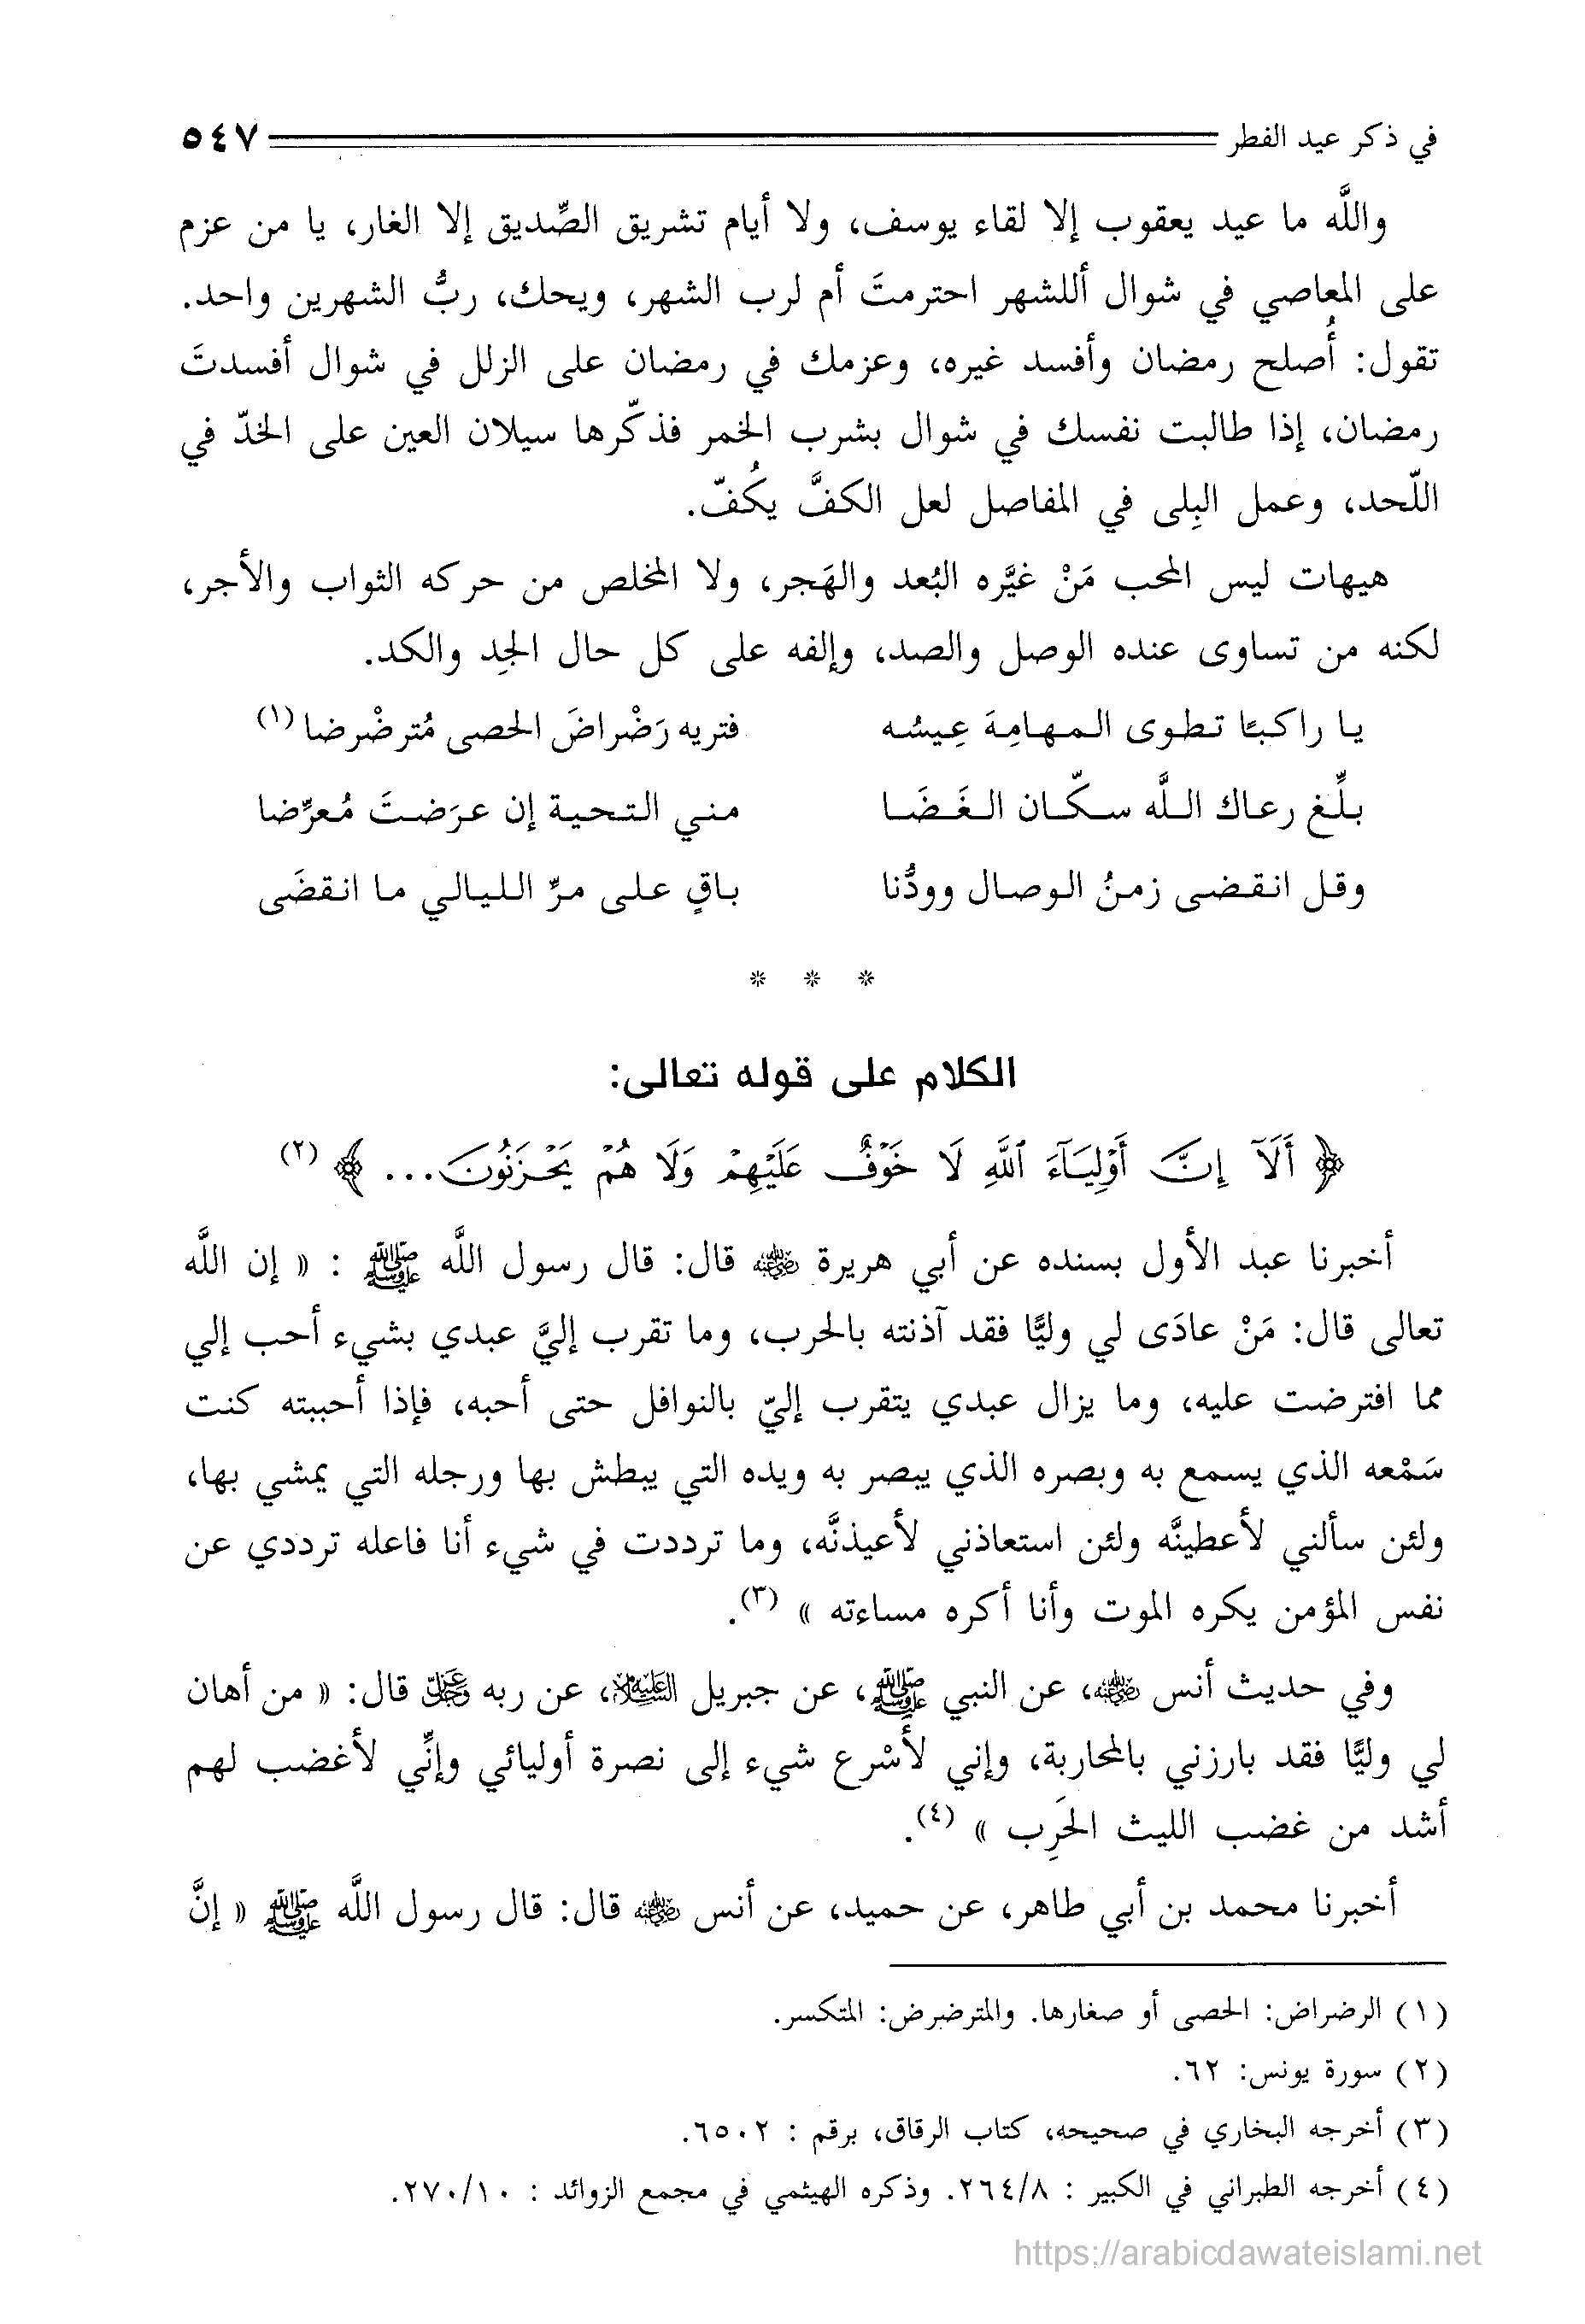 في ذكر عيد الفطر ٥٤٧
واللَّه ما عيد يعقوب إلا لقاء يوسف، ولا أيام تشريق الصِّديق إلا الغار، يا من عزم
على المعاصي في شوال أللشهر احترمتَ أم لرب الشهر، ويحك، ربُّ الشهرين واحد.
تقول: أُصلح رمضان وأفسد غيره، وعزمك في رمضان على الزلل في شوال أفسدتَ
رمضان، إذا طالبت نفسك في شوال بشرب الخمر فذكّرها سيلان العين على الخدّ في
اللّحد، وعمل البِلى في المفاصل لعل الكفَّ يكُفّ.
هيهات ليس المحب مَنْ غيَّره البُعد والهَجر، ولا المخلص من حركه الثواب والأجر،
لكنه من تساوى عنده الوصل والصد، وإلفه على كل حال الجِد والكد.
يا راكبًا تطوى المهامِةَ عِيسُه فتريه رَضْراضَ الحصى مُترضْرضا (١)
بلِّغ رعاك اللَّه سكّان الغَضَا مني التحية إن عرَضتَ مُعرِّضا
وقل انقضى زمنُ الوصال وودُّنا باقٍ على مرِّ الليالي ما انقضَى
* * *
الكلام على قوله تعالى:
﴿ أَلَآ إِنَّ أَوْلِيَآءَ ٱللَّهِ لَا خَوْفٌ عَلَيْهِمْ وَلَا هُمْ يَحْزَنُونَ... ﴾ (٢)
أخبرنا عبد الأول بسنده عن أبي هريرة رضي الله عنه قال: قال رسول اللَّه ﷺ : « إن اللَّه
تعالى قال: مَنْ عادَى لي وليًّا فقد آذنته بالحرب، وما تقرب إليَّ عبدي بشيء أحب إلي
مما افترضت عليه، وما يزال عبدي يتقرب إليّ بالنوافل حتى أحبه، فإذا أحببته كنت
سَمْعه الذي يسمع به وبصره الذي يبصر به ويده التي يبطش بها ورجله التي يمشي بها،
ولئن سألني لأعطينَّه ولئن استعاذني لأعيذنَّه، وما ترددت في شيء أنا فاعله ترددي عن
نفس المؤمن يكره الموت وأنا أكره مساءته » (٣).
وفي حديث أنس رضي الله عنه، عن النبي ﷺ، عن جبريل عليه السلام، عن ربه عز وجل قال: « من أهان
لي وليًّا فقد بارزني بالمحاربة، وإني لأَسْرع شيء إلى نصرة أوليائي وإنِّي لأغضب لهم
أشد من غضب الليث الحَرِب » (٤).
أخبرنا محمد بن أبي طاهر، عن حميد، عن أنس رضي الله عنه قال: قال رسول اللَّه ﷺ « إنَّ
(١) الرضراض: الحصى أو صغارها. والمترضرض: المتكسر.
(٢) سورة يونس: ٦٢.
(٣) أخرجه البخاري في صحيحه، كتاب الرقاق، برقم : ٦٥٠٢.
(٤) أخرجه الطبراني في الكبير : ٢٦٤/٨. وذكره الهيثمي في مجمع الزوائد : ٢٧٠/١٠.
https://arabicdawateislami.net